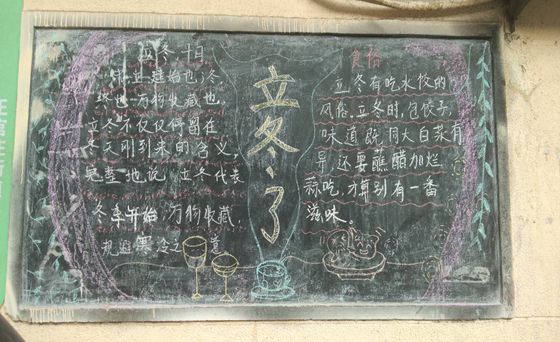 立冬,十月
解:立,建始也;冬,
终也,万物收藏也。
立冬不仅仅停留在
冬天刚到来的含义,
完整地说,立冬代表
冬季开始,万物收藏,
规避寒冷之意
立冬了
食俗
立冬有吃水饺的
风俗,立冬时,包饺子,
味道既同大白菜有
异,还要蘸醋加烂
蒜吃,才算别有一番
滋味。